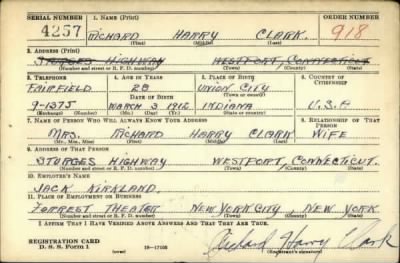 SERIAL NUMBER 1. NAME (Print) ORDER NUMBER
4257 RICHARD HARRY CLARK 918
(First) (Middle) (Last)
2. ADDRESS (Print)
STURGES HIGHWAY WESTPORT, CONNECTICUT
(Number and street or R. F. D. number) (Town) (County) (State)
3. TELEPHONE 4. AGE IN YEARS 5. PLACE OF BIRTH 6. COUNTRY OF CITIZENSHIP
FAIRFIELD 28 UNION CITY
DATE OF BIRTH (Town or county)
9-1375 MARCH 3 1912 INDIANA U.S.A
(Exchange) (Number) (Mo.) (Day) (Yr.) (State or country)
7. NAME OF PERSON WHO WILL ALWAYS KNOW YOUR ADDRESS 8. RELATIONSHIP OF THAT PERSON
MRS. RICHARD HARRY CLARK WIFE
(Mr., Mrs., Miss) (First) (Middle) (Last)
9. ADDRESS OF THAT PERSON
STURGES HIGHWAY WESTPORT, CONNECTICUT.
(Number and street or R. F. D. number) (Town) (County) (State)
10. EMPLOYER'S NAME
JACK KIRKLAND
11. PLACE OF EMPLOYMENT OR BUSINESS
FORREST THEATER NEW YORK CITY, NEW YORK
(Number and street or R. F. D. number) (Town) (County) (State)
I AFFIRM THAT I HAVE VERIFIED ABOVE ANSWERS AND THAT THEY ARE TRUE.
REGISTRATION CARD
D. S. S. Form 1 (over) 16-17105 Richard Harry Clark
(Registrant's signature)